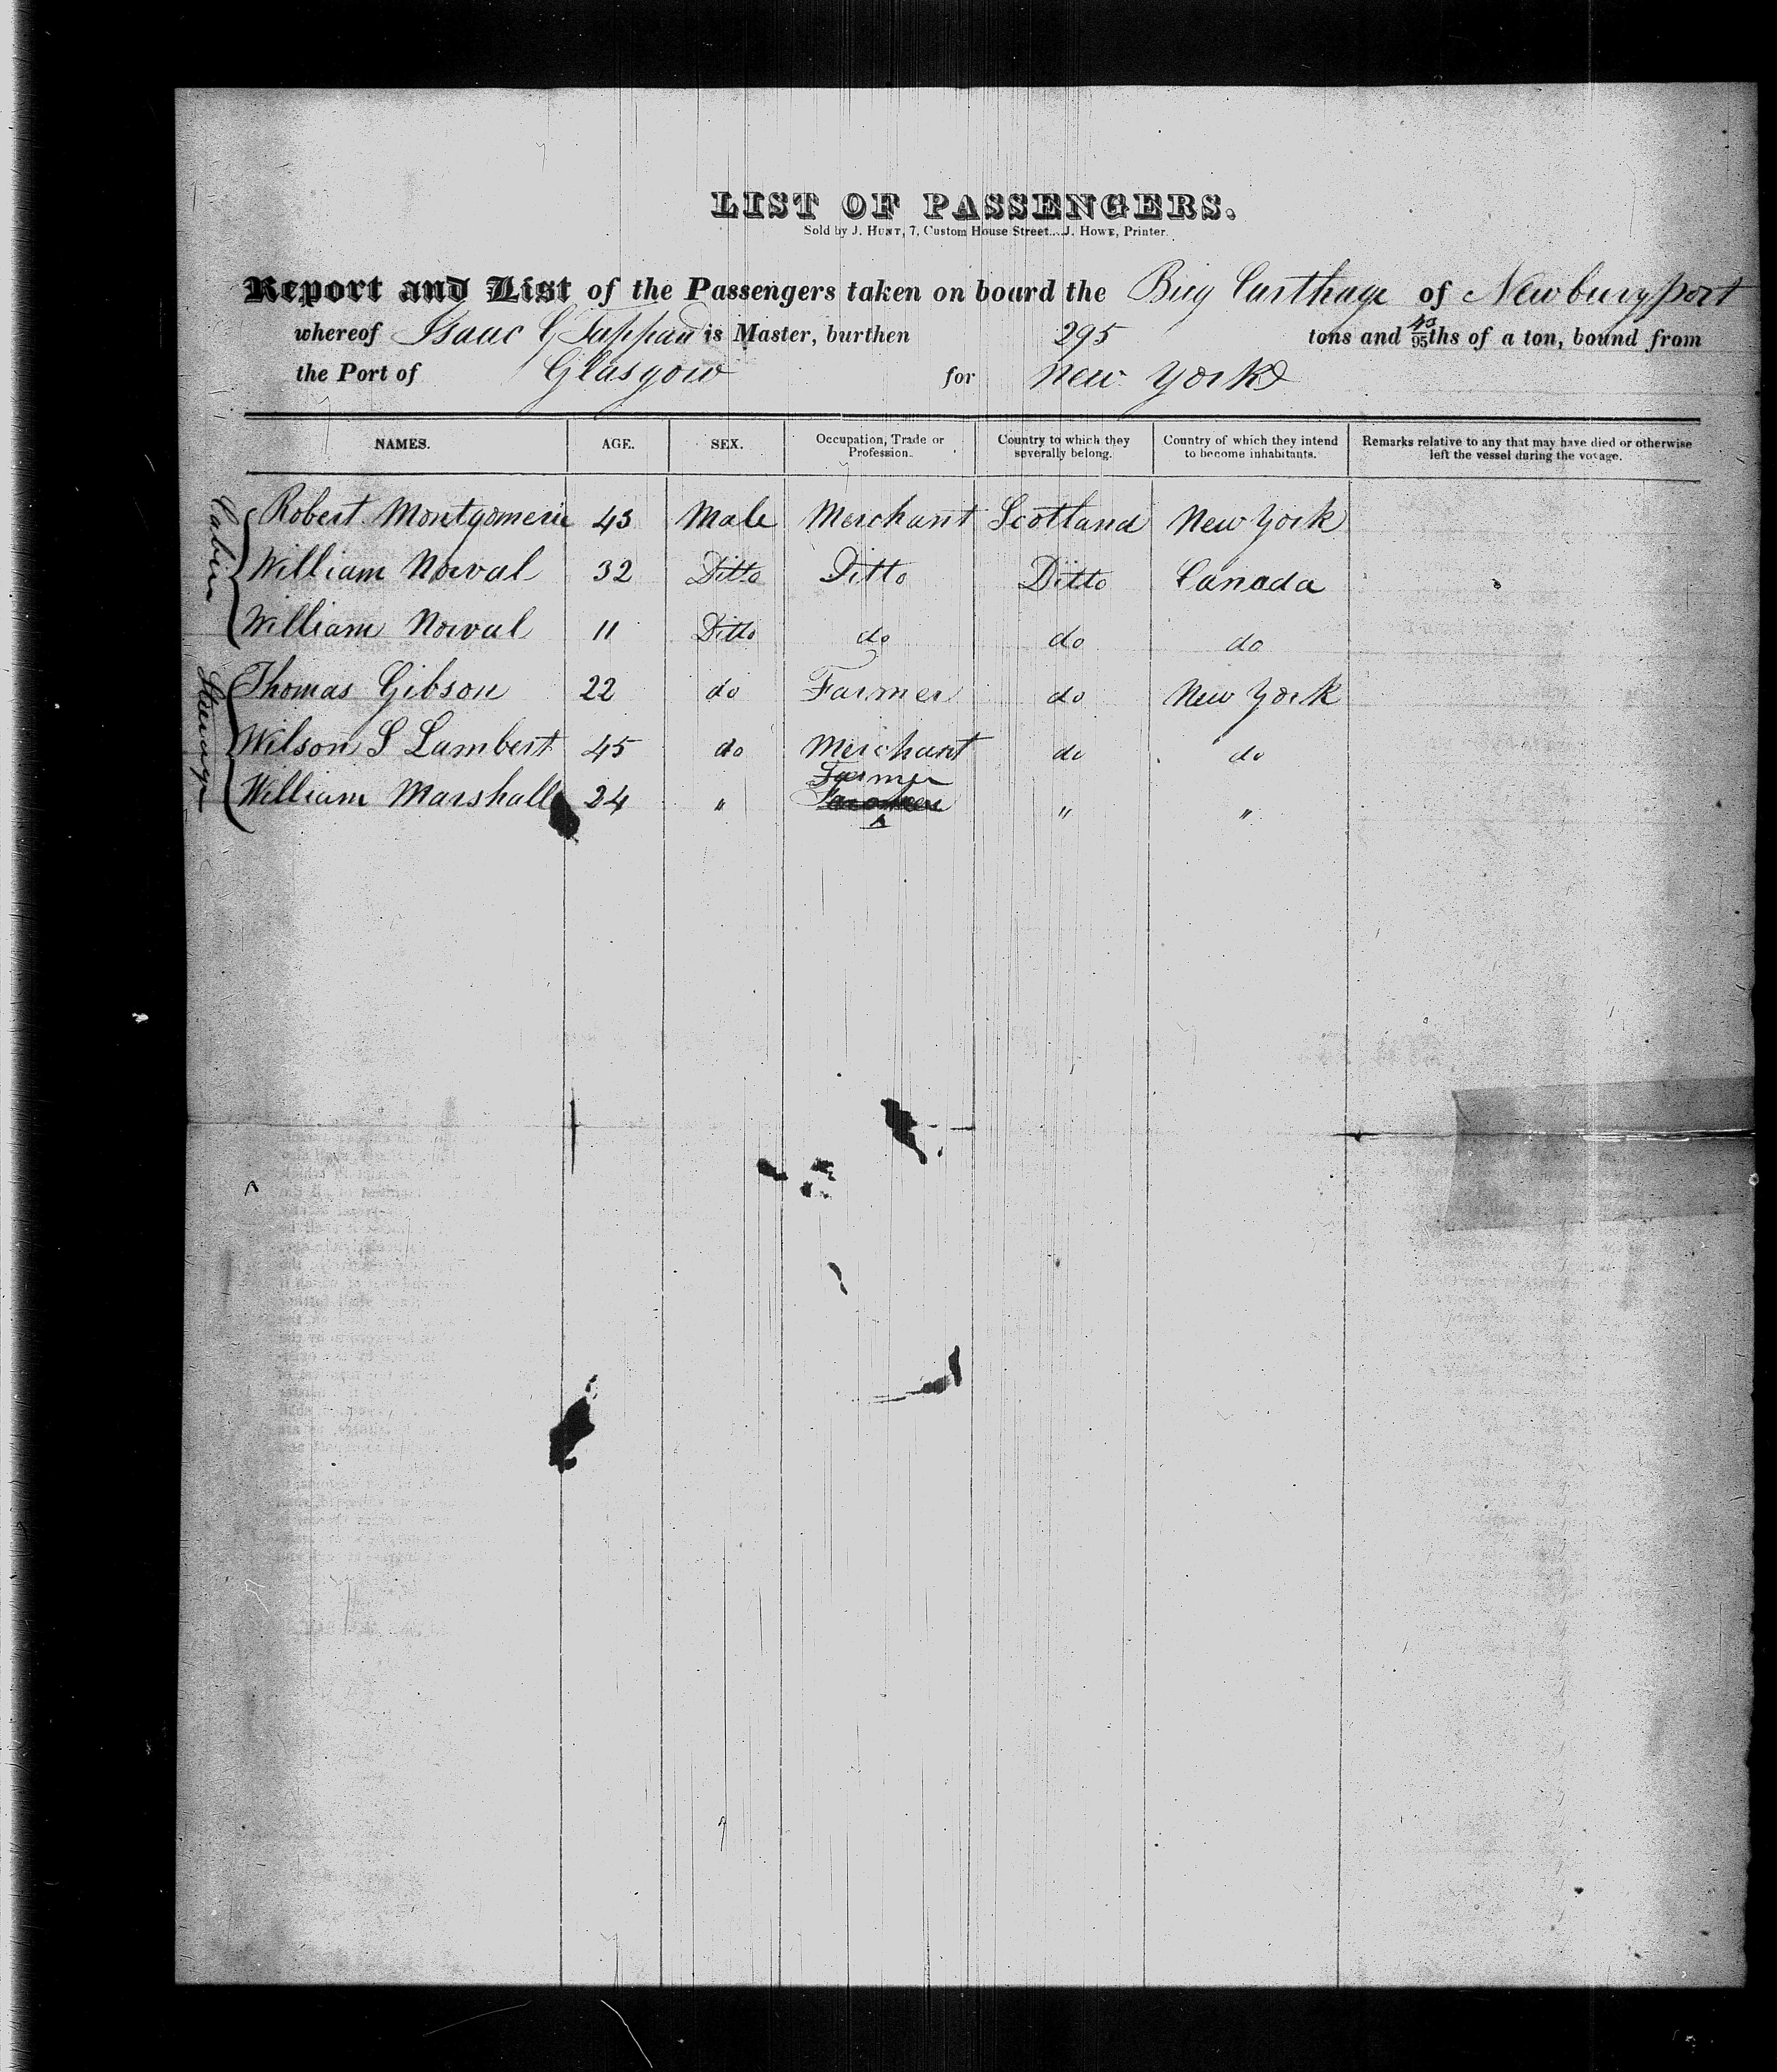 LIST OF PASSENGERS.
Sold by J. HUNT, 7, Custom House Street....J. HOWE, Printer.
Report and List of the Passengers taken on board the Brig Carthage of Newburyport
whereof Isaac G Tappan is Master, burthen 295 tons and 43/95ths of a ton, bound from
the Port of Glasgow for New York
NAMES. AGE. SEX. Occupation, Trade or Profession. Country to which they severally belong. Country of which they intend to become inhabitants. Remarks relative to any that may have died or otherwise left the vessel during the voyage.
Cabin
Robert Montgomerie 43 Male Merchant Scotland New York
William Norval 32 Ditto Ditto Ditto Canada
William Norval 11 Ditto do do do
Steerage
Thomas Gibson 22 do Farmer do New York
Wilson S Lambert 45 do Merchant do do
William Marshall 24 " Farmer " "